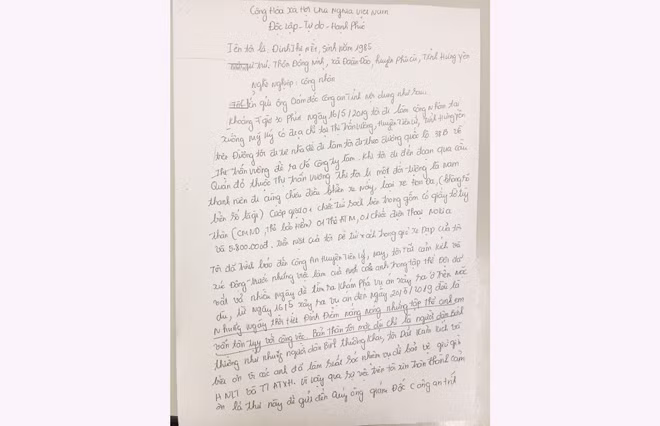 Cộng Hòa Xã Hội Chủ Nghĩa Việt Nam
Độc lập - Tự do - Hạnh Phúc
Tên tôi là: Đinh Thị nết, sinh năm 1985
trú, Thôn Đông Ninh, xã Đoàn Đào, huyện Phù Cừ, Tỉnh Hưng yên
Nghề nghiệp: Công nhân
gửi ông Giám đốc Công an Tỉnh Nội dung như sau.
Khoảng 7 giờ 10 Phút ngày 16/5/2019 tôi đi làm công Nhân tại
xưởng mỹ ký có địa chỉ tại Thị Trấn Vương, Huyện Tiên Lữ, Tỉnh Hưng yên
trên Đường tôi đi xe nhà để đi làm tôi đi theo đường quốc lộ 38B về
Thị Trấn vương để ra chỗ công ty làm. Khi tôi đi đến đoạn qua cầu
Quán đỏ thuộc Thị Trấn vương thì tôi bị một đối tượng là nam
thanh niên đi cùng chiều điều khiển xe máy, loại xe Honda, (không rõ
biển số) Cướp giật 01 chiếc túi sách bên trong gồm có giấy tờ tùy
thân (CMND, thẻ bảo hiểm) 01 thẻ ATM, 01 chiếc điện Thoại NOKIA
và 5.800.000đ. tiền mặt của tôi để Túi xách trong giỏ xe Đạp của tôi
Tôi đã Trình báo đến công An Huyện Tiên Lữ, nay, tôi rất cảm kích và
xúc động trước những việc làm của các anh trong tập thể Đội đã
vất vả nhiều ngày để tìm ra khám phá vụ án xảy ra ở trên mặc
dù, từ Ngày 16/5 xảy ra vụ án đến ngày 20/5/2019 đều là
Những ngày thời tiết Đỉnh Điểm nóng nóng nhưng tập thể anh em
vẫn tận tụy với công việc Bản Thân tôi một chỉ là người dân Bình
thường như những người dân Bình thường khác, tôi rất biết
ơn vì các anh đã làm xuất sắc nhiệm vụ để bảo vệ giữ gìn
ANCT và TTATXH. Vì vậy qua sự việc trên tôi xin Trân thành cảm
ơn lá thư này để gửi đến Quý ông giám Đốc Công an tỉnh